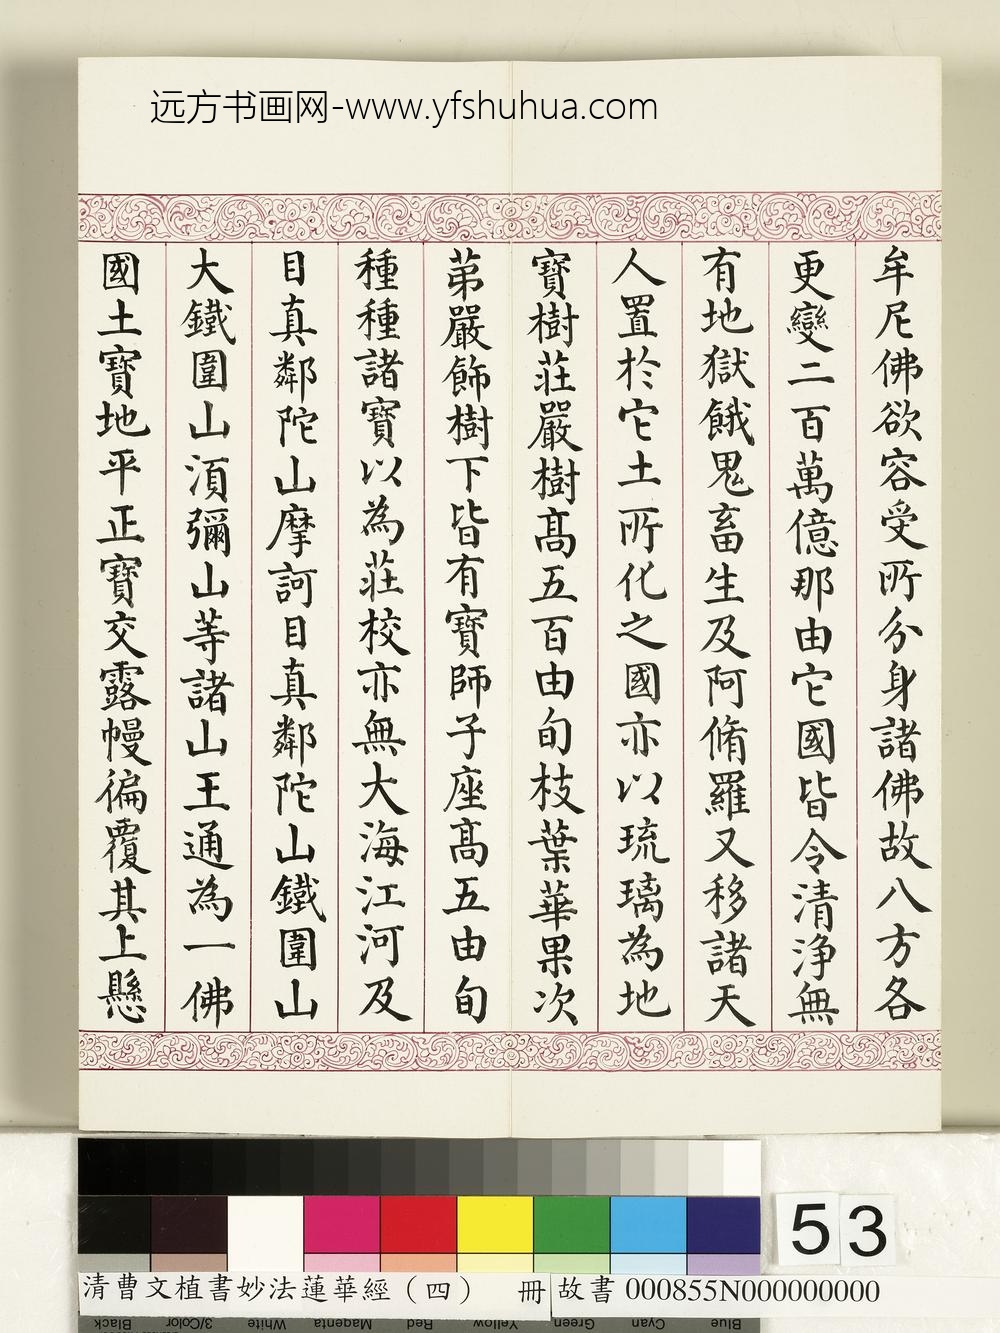 远方书画网-www.yfshuhua.com
牟尼佛欲容受所分身諸佛故八方各
更變二百萬億那由它國皆令清浄無
有地獄餓鬼畜生及阿脩羅又移諸天
人置於它土所化之國亦以琉璃為地
寶樹莊嚴樹髙五百由旬枝葉華果次
苐嚴飾樹下皆有寶師子座髙五由旬
種種諸寶以為莊校亦無大海江河及
目真鄰陀山摩訶目真鄰陀山鐵圍山
大鐵圍山湏彌山等諸山王通為一佛
國土寶地平正寶交露幔徧覆其上懸
53
清曹文植書妙法蓮華經（四） 冊
故書 000855N000000000
Black 3/Color White Magenta Red Yellow Green Cyan Blue